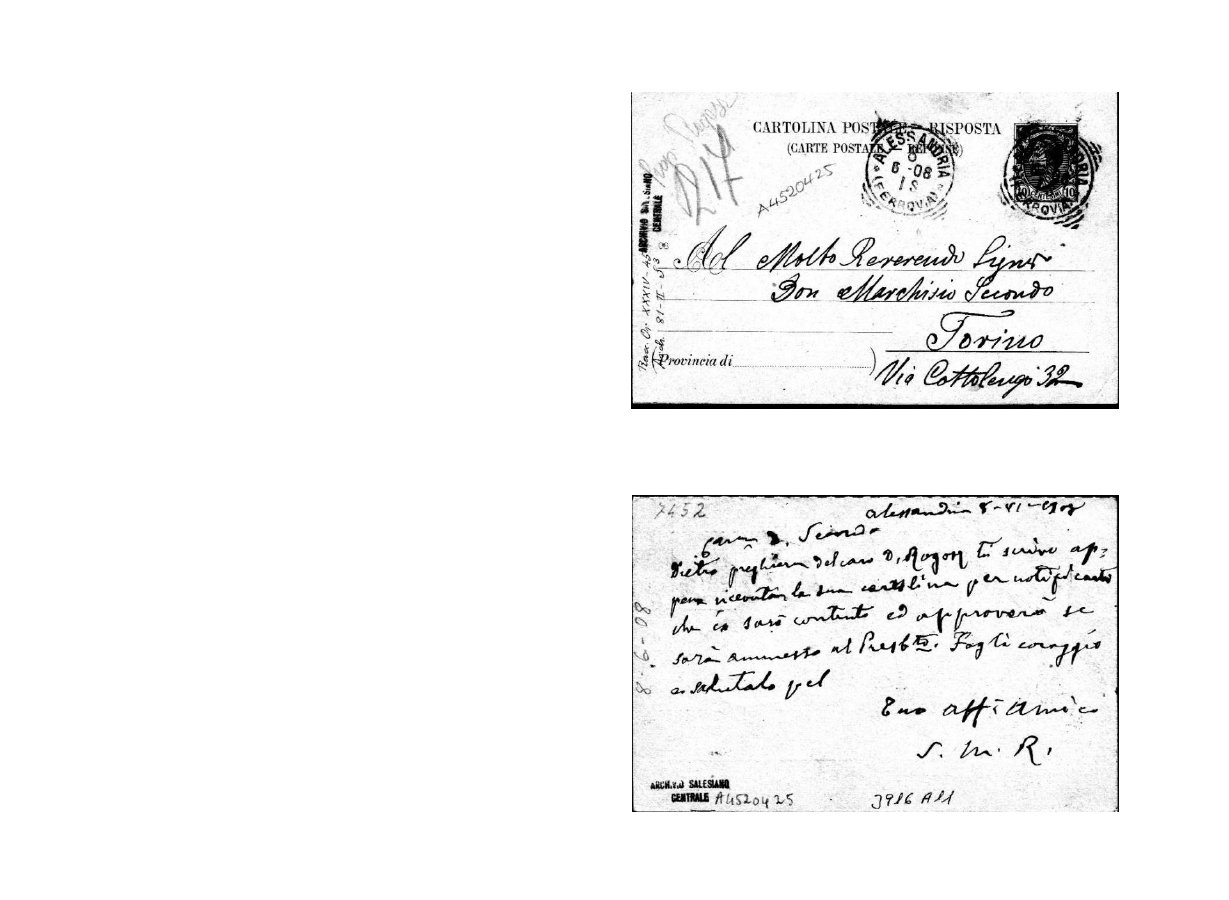 CARTOLINA POSTALE - RISPOSTA
(CARTE POSTALE - RÉPONSE)
ALESSANDRIA
8
6-08
1S
(FERROVIA)
10 10
214
A4520425
ARCHIVIO SALESIANO
CENTRALE
Al Molto Reverendo Signor
Don Marchisio Secondo
Torino
Provincia di
Via Cottolengo 32
7452
Alessandria 8-VI-1908
Carm D. Secondo
Dietro preghiera del caro D. ti scrivo ap=
pena ricevuta la sua cartolina per notificarti
che io sarò contento ed approverò se
sarà ammesso al Presbto. Fagli coraggio
e salutalo pel
Tuo aff amico
S. M. R.
8-6-08
ARCHIVIO SALESIANO
CENTRALE A4520425